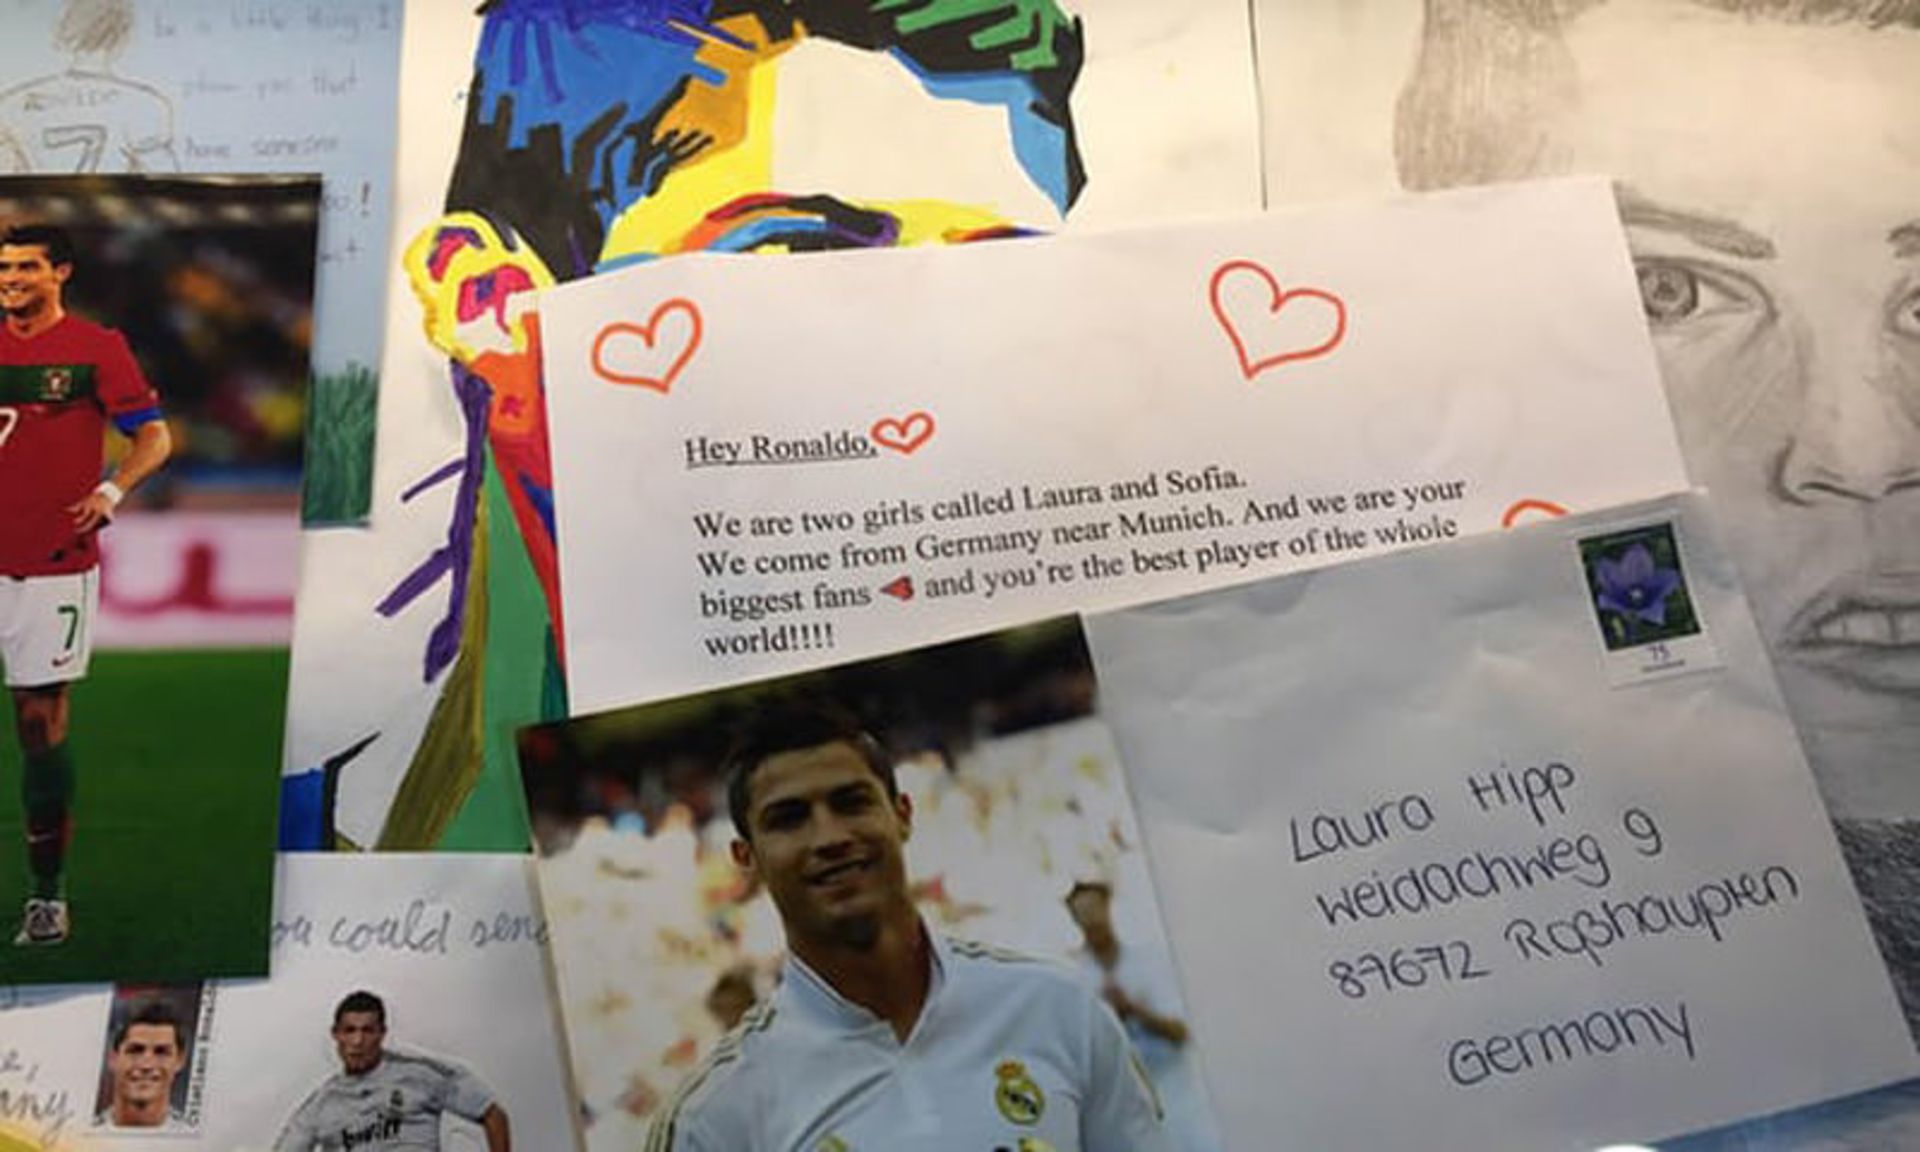 be a little thing I
show you that
RONALDO
7
have someone
you!
7
7
Hey Ronaldo,
We are two girls called Laura and Sofia.
We come from Germany near Munich. And we are your
biggest fans and you're the best player of the whole
world!!!!
75
Laura Hipp
Weidachweg 9
87672 Roßhaupten
Germany
ou could send
Cristiano Ronaldo
bwin